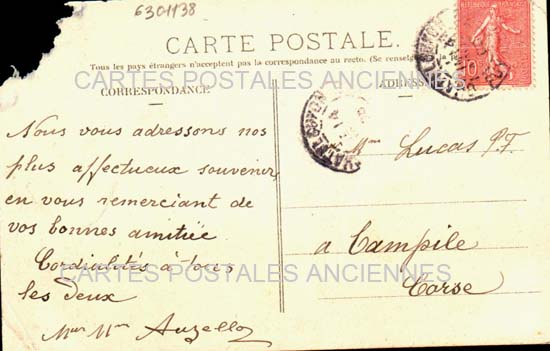 6301138
CARTE POSTALE.
Tous les pays étrangers n'acceptent pas la correspondance au recto. (Se renseigner
CARTES POSTALES ANCIENNES
CORRESPONDANCE
ADRESSE
Nous vous adressons nos
plus affectueux souvenir,
en vous remerciant de
vos bonnes amitiée
Cordialités à tous
les deux
Mme Lucas P.F.
a Campile
Corse
CARTES POSTALES ANCIENNES
10